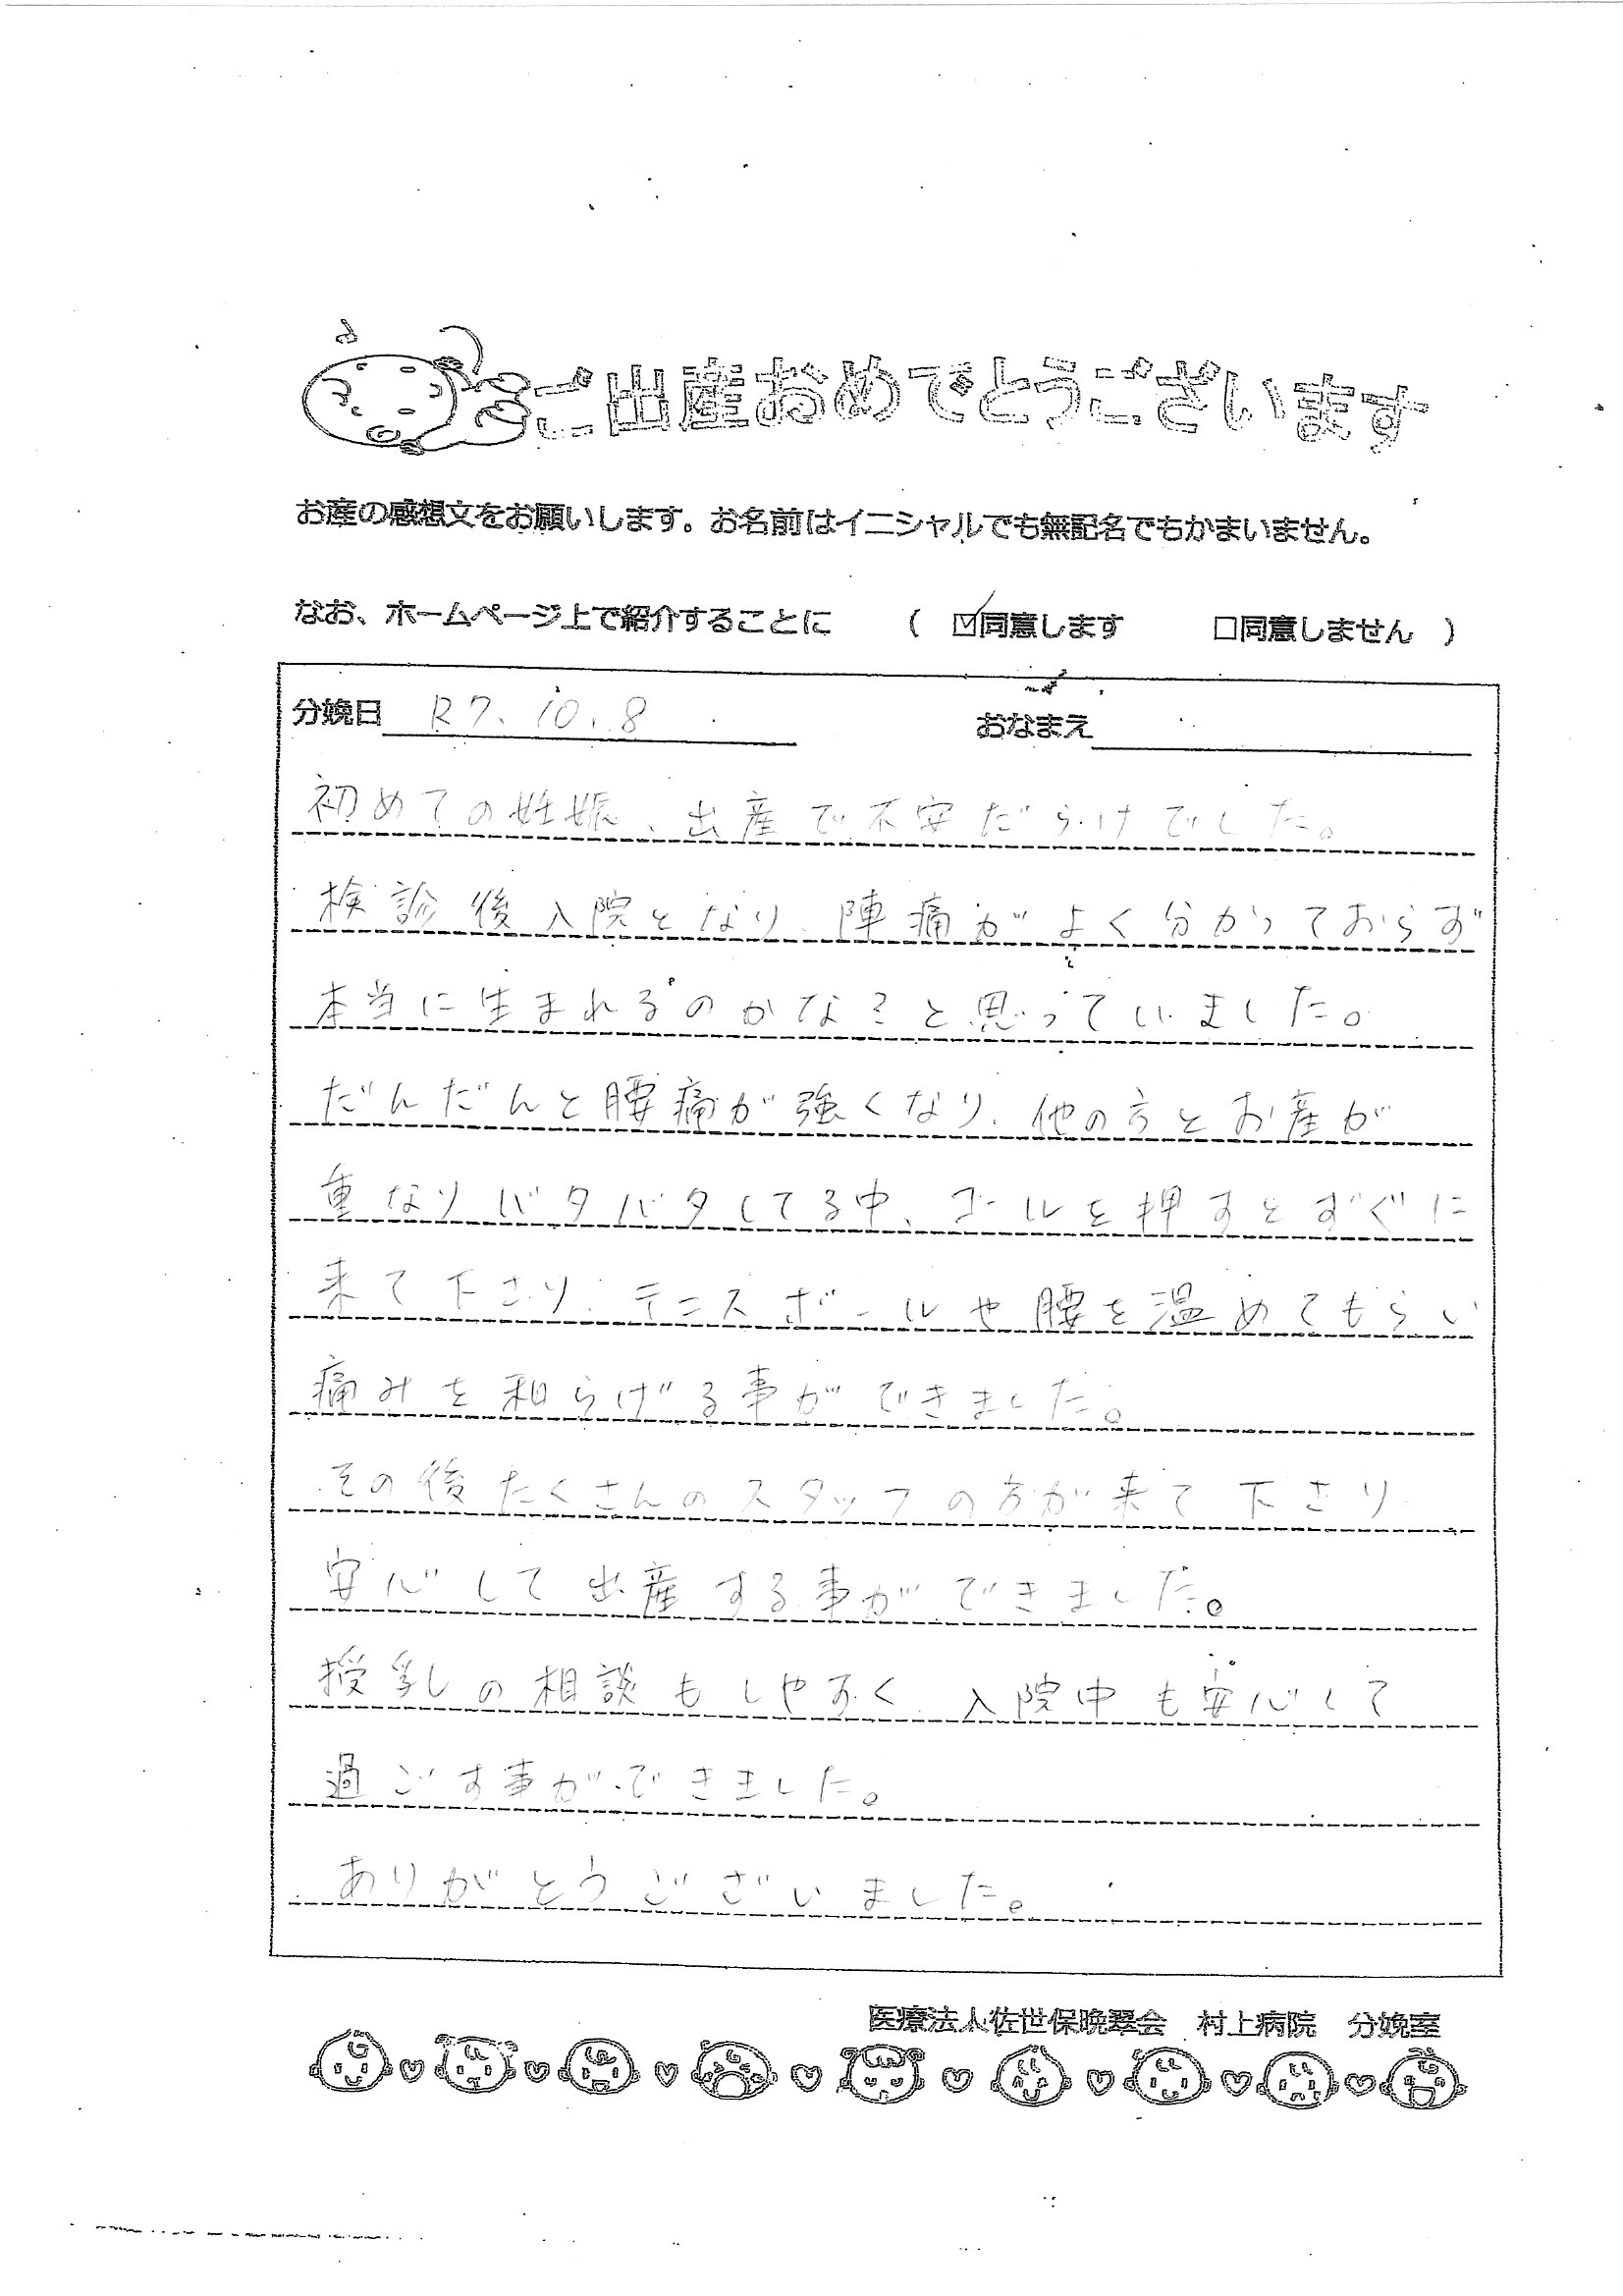 ご出産おめでとうございます
お産の感想文をお願いします。お名前はイニシャルでも無記名でもかまいません。
なお、ホームページ上で紹介することに （ ☑同意します □同意しません ）
分娩日 R7.10.8 おなまえ
初めての妊娠、出産で不安だらけでした。
検診後入院となり、陣痛がよく分かっておらず
本当に生まれるのかな？と思っていました。
だんだんと腰痛が強くなり、他の方とお産が
重なりバタバタしてる中、コールを押すとすぐに
来て下さり、テニスボールや腰を温めてもらい
痛みを和らげる事ができました。
その後たくさんのスタッフの方が来て下さり
安心して出産する事ができました。
授乳の相談もしやすく、入院中も安心して
過ごす事ができました。
ありがとうございました。
医療法人佐世保晩翠会 村上病院 分娩室